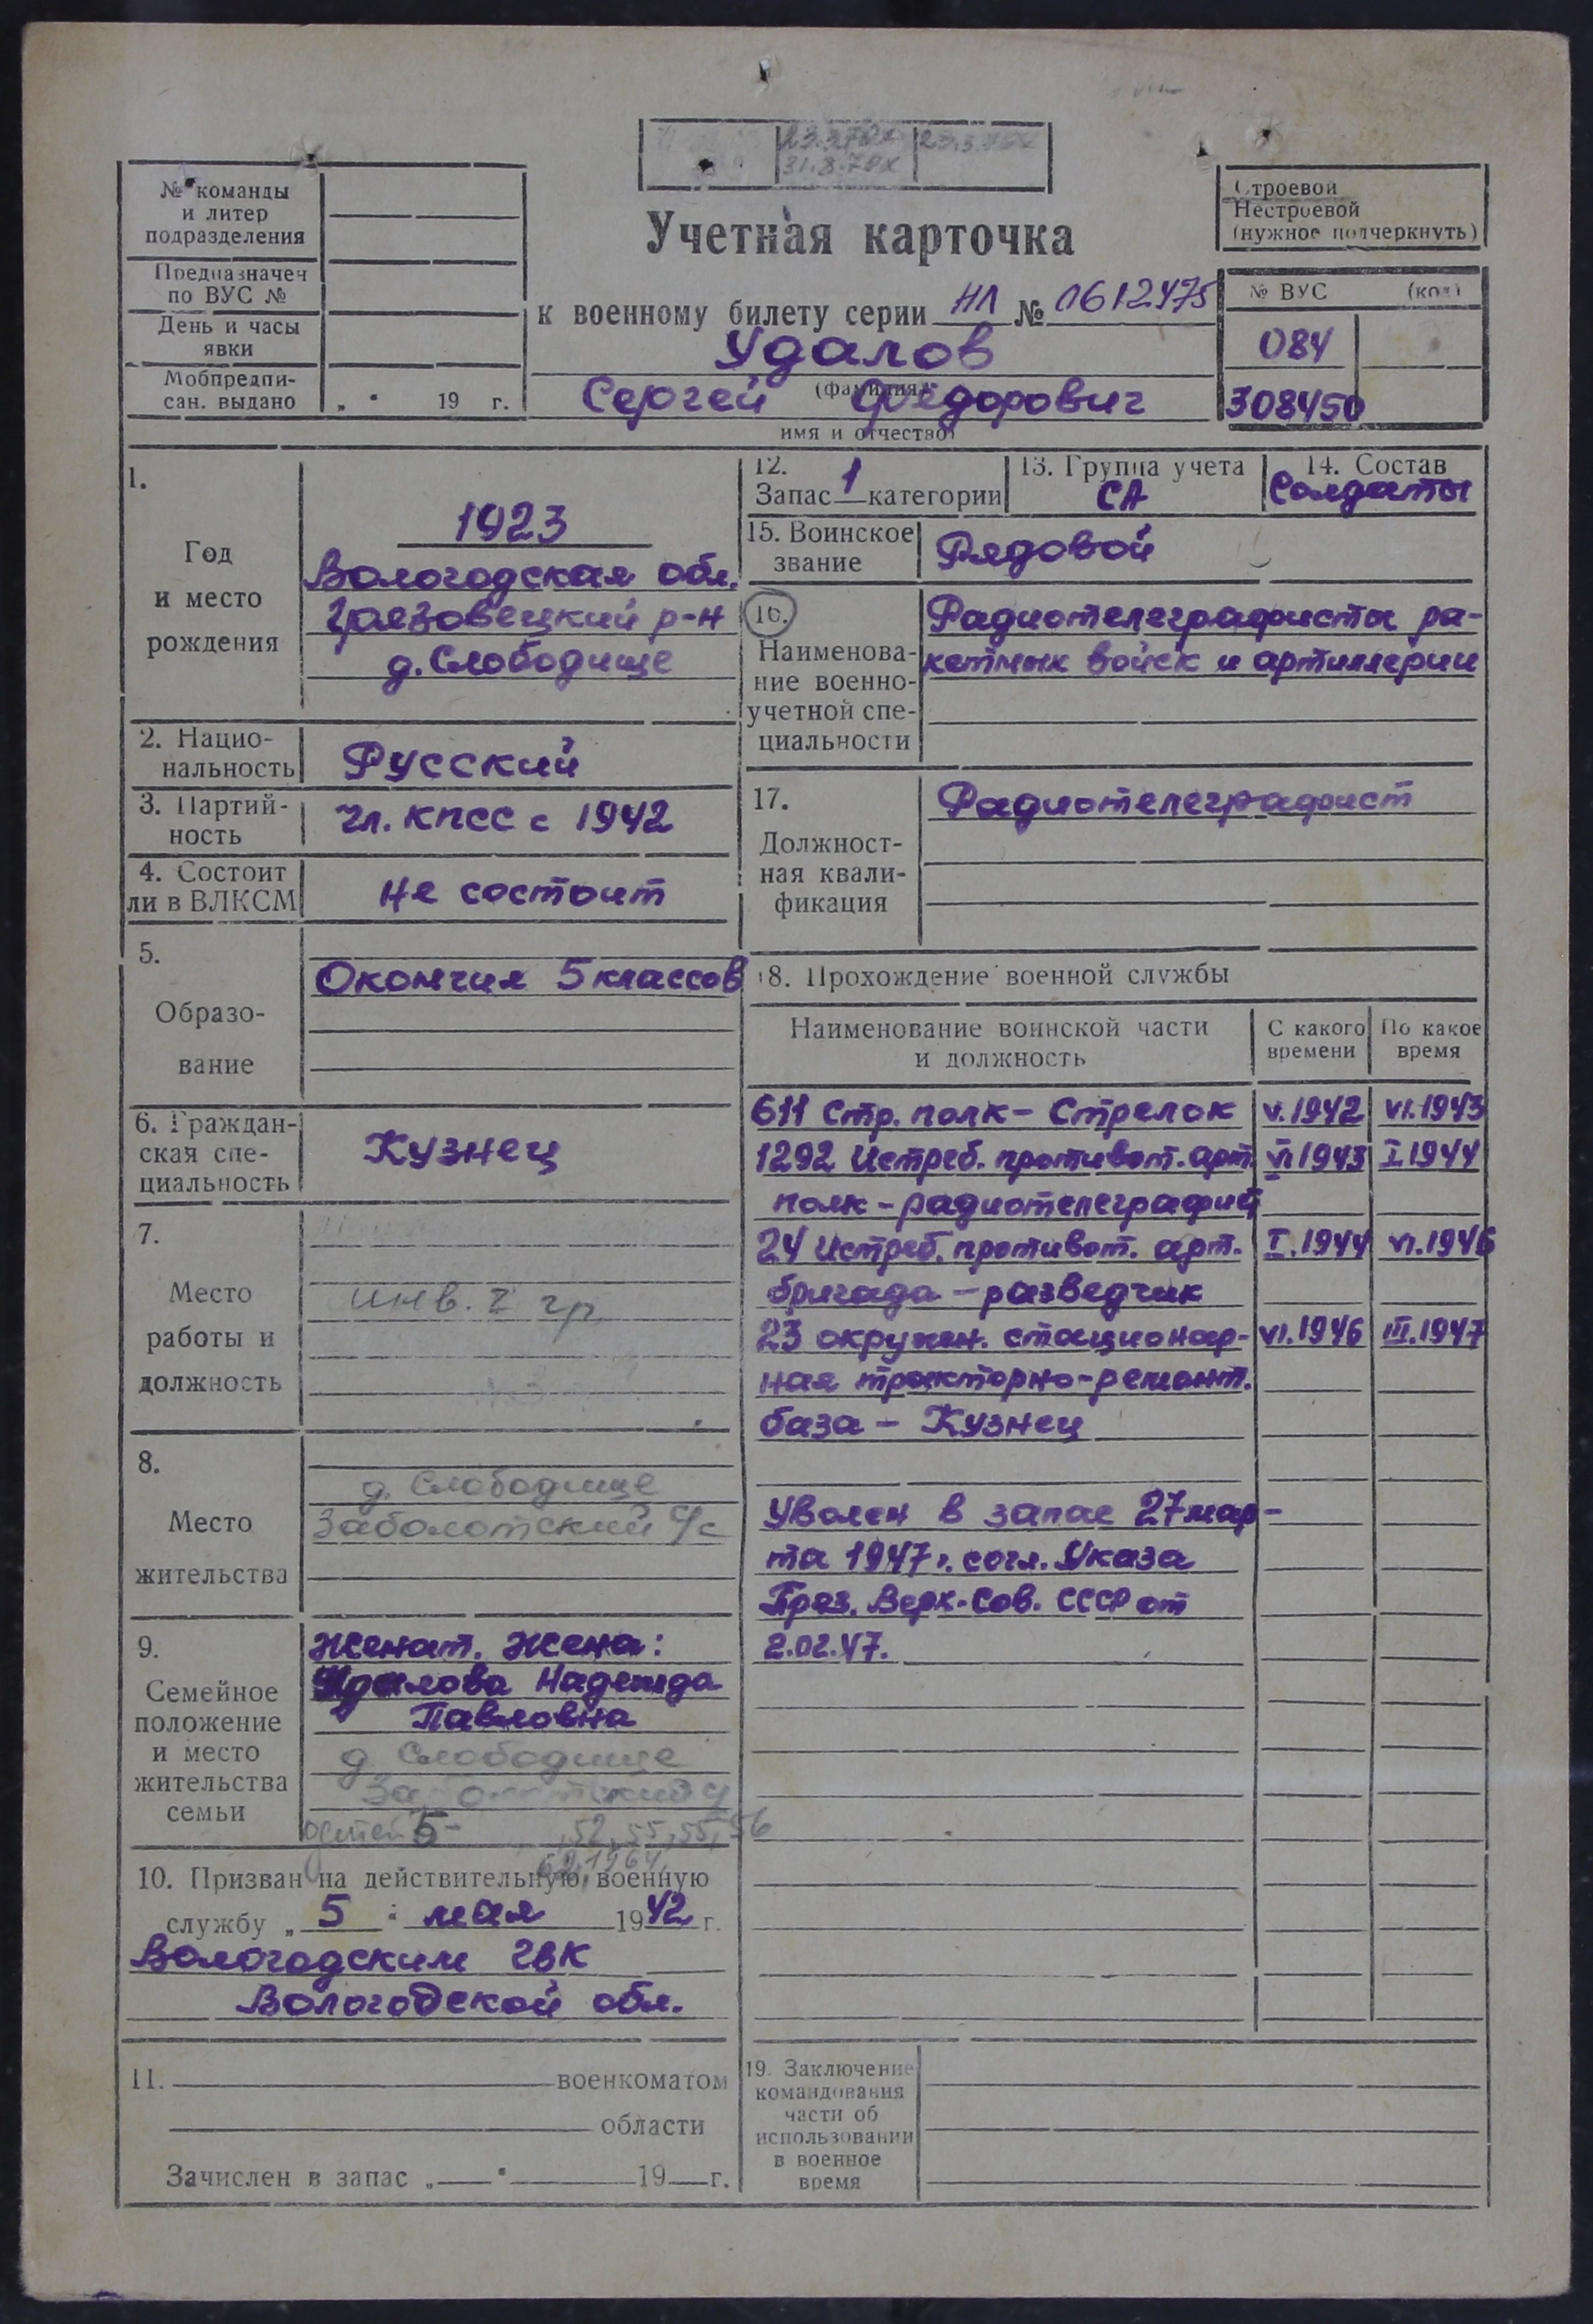 23.3.70х
31.8.70х
№ команды
и литер
подразделения
Предназначен
по ВУС №
День и часы
явки
Мобпредпи-
сан. выдано „ " 19 г.
Учетная карточка
к военному билету серии НЛ № 0612475
Удалов
(фамилия)
Сергей Фёдорович
имя и отчество)
Строевой
Нестроевой
(нужное подчеркнуть)
№ ВУС (код)
084
308450
1.
Год
и место
рождения
1923
Вологодская обл.
Грязовецкий р-н
д. Слободище
2. Нацио-
нальность
Русский
3. Партий-
ность
Чл. КПСС с 1942
4. Состоит
ли в ВЛКСМ
Не состоит
5.
Образо-
вание
Окончил 5 классов
6. Граждан-
ская спе-
циальность
Кузнец
7.
Место
работы и
должность
инв. 2 гр.
8.
Место
жительства
д. Слободище
Заболотский с/с
9.
Семейное
положение
и место
жительства
семьи
Женат. Жена:
Удалова Надежда
Павловна
д. Слободище
детей 5 - , 52, 55, 55, 56
62, 1964,
10. Призван на действительную военную
службу „ 5 " мая 1942 г.
Вологодским ГВК
Вологодской обл.
11. военкоматом
области
Зачислен в запас „ " 19 г.
12.
Запас 1 категории
13. Группа учета
СА
14. Состав
Солдаты
15. Воинское
звание
Рядовой
16.
Наименова-
ние военно-
учетной спе-
циальности
Радиотелеграфисты ра-
кетных войск и артиллерии
17.
Должност-
ная квали-
фикация
Радиотелеграфист
18. Прохождение военной службы
Наименование воинской части
и должность
С какого
времени
По какое
время
611 Стр. полк - Стрелок V.1942 VI.1943
1292 Истреб. противот. арт. VI 1943 I 1944
полк - радиотелеграфист
24 Истреб. противот. арт. I.1944 VI.1946
бригада - разведчик
23 окружн. стационар- VI.1946 III.1947
ная тракторно-ремонт.
база - Кузнец
Уволен в запас 27 мар-
та 1947 г. согл. Указа
През. Верх. Сов. СССР от
2.02.47.
19. Заключение
командования
части об
использовании
в военное
время